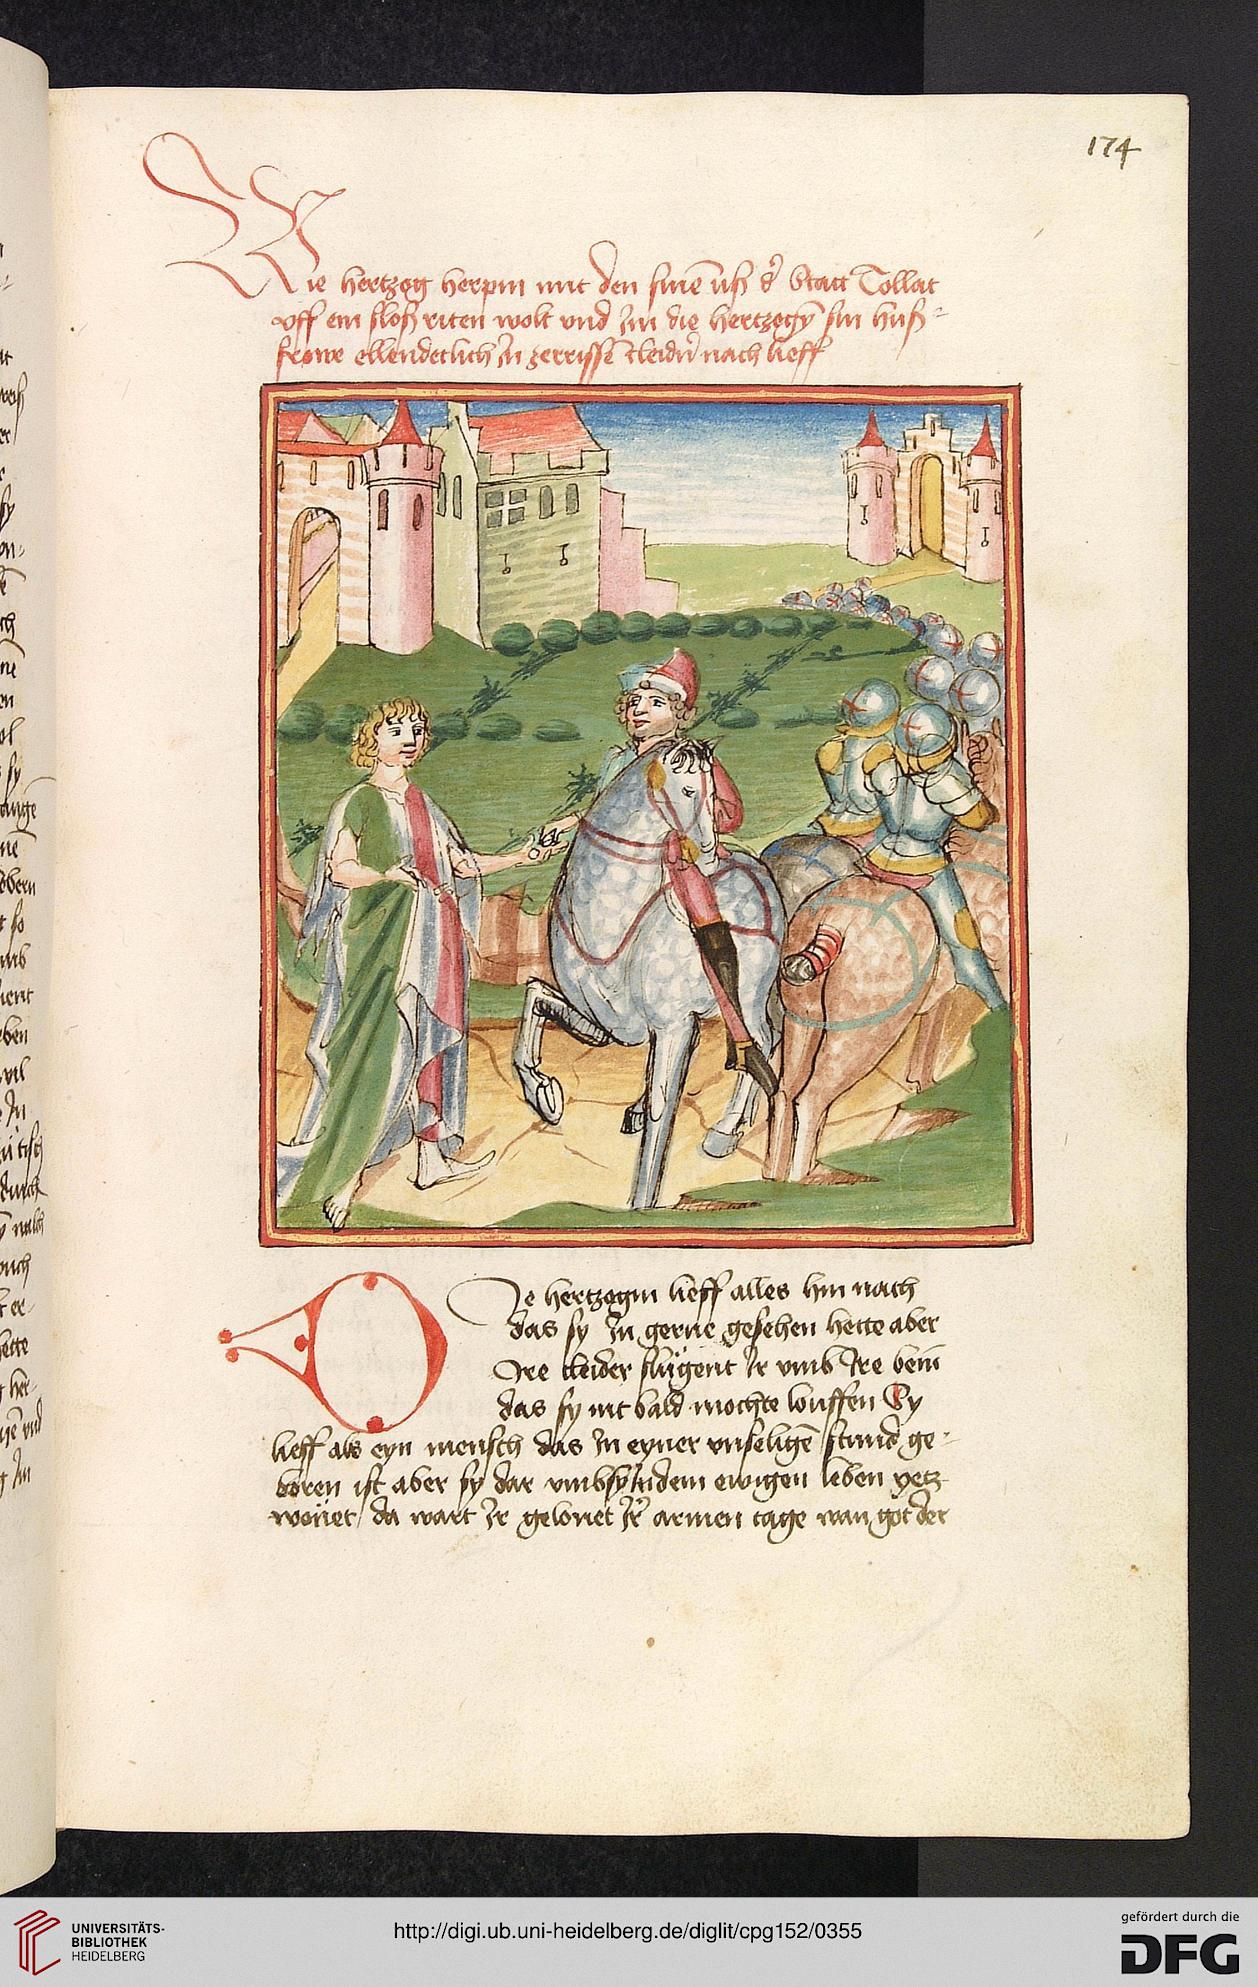 174
Wie hertzog herpin mit den sinē uß d' Statt Tollat
vff ein sloß riten wolt vnd Im die hertzogȳ sin huß-
frowe ellendetlich Jn zerrissē cleidn' nach lieff
Die hertzogin lieff alles hin nach
das sy In gerne gesehen hette aber
Ire cleider slügent Ir vmb Ire bein
das sy nit bald mochte louffen Sy
lieff als eyn mensch das In eyner vnseligē stund ge-
boren ist aber sy dar vmb sy Indem ewigen leben yetz
wonet / da wart Ir gelonet Ir' armen tage wan got der
UNIVERSITÄTS-
BIBLIOTHEK
HEIDELBERG
http://digi.ub.uni-heidelberg.de/diglit/cpg152/0355
gefördert durch die
DFG